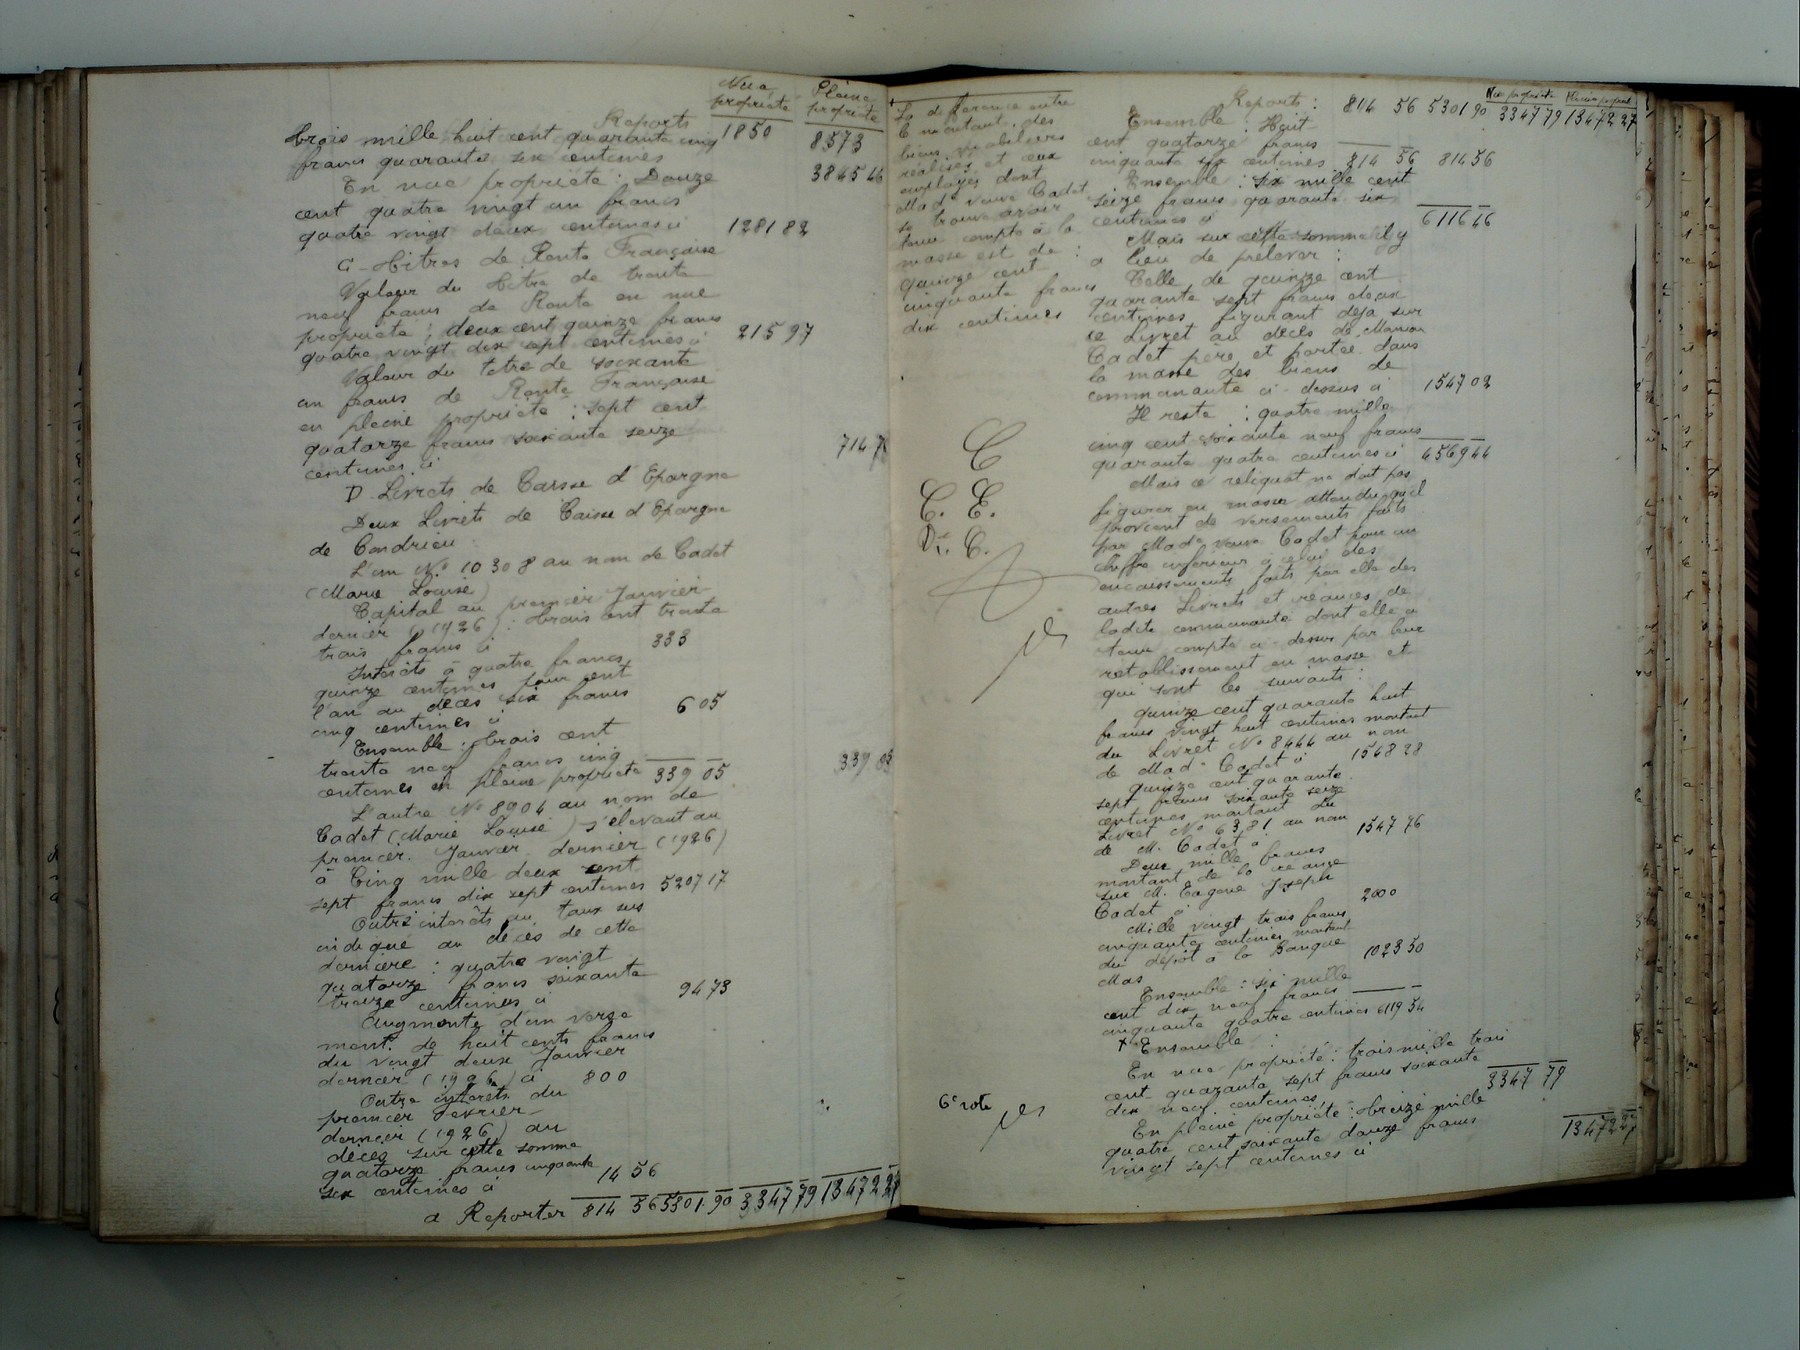 Nue Pleine
propriété propriété
Reports 1850 8573
trois mille huit cent quarante cinq
francs quarante six centimes 3845 46
En nue propriété : Douze
cent quatre vingt un francs
quatre vingt deux centimes à 1281 82
C - Titres de Rente Française
Valeur du titre de trente
neuf francs de Rente en nue
propriété : deux cent quinze francs
quatre vingt dix sept centimes à 215 97
Valeur du titre de soixante
un francs de Rente Française
en pleine propriété : sept cent
quatorze francs soixante seize
centimes à 714 7
D - Livrets de Caisse d'Epargne
Deux Livrets de Caisse d'Epargne
de Condrieu
L'un No 10308 au nom de Cadet
(Marie Louise)
Capital au premier Janvier
dernier (1926) : trois cent trente
trois francs à 333
Intérêts à quatre francs
quinze centimes pour cent
l'an au décès six francs
cinq centimes à 6 05
Ensemble : trois cent
trente neuf francs cinq
centimes en pleine propriété 339 05 339 05
L'autre No 8904 au nom de
Cadet (Marie Louise) s'élevant au
premier Janvier dernier (1926)
à Cinq mille deux cent
sept francs dix sept centimes 5207 17
Outre intérêts au taux sus
indiqué au décès de cette
dernière : quatre vingt
quatorze francs soixante
treize centimes à 94 73
Augmenté d'un verse
ment de huit cents francs
du vingt deux Janvier
dernier (1926) à 800
Outre intérêts du
premier Février
dernier (1926) au
décès sur cette somme
quatorze francs cinquante
six centimes à 14 56
a Reporter 814 56 5301 90 3347 79 13472 27
La différence entre
le montant des
biens mobiliers
réalisés et ceux
employés dont
Made veuve Cadet
se trouve avoir
tenu compte à la
masse est de :
quinze cent
cinquante francs
dix centimes
C
C. E.
D. C.
6e rôle
Nue propriété Pleine propriété
Reports : 814 56 5301 90 3347 79 13472 27
Ensemble : Huit
cent quatorze francs
cinquante six centimes 814 56 814 56
Ensemble : Six mille cent
seize francs quarante six
centimes à 6116 46
Mais sur cette somme il y
a lieu de prélever :
Celle de quinze cent
quarante sept francs deux
centimes figurant déjà sur
ce Livret au décès de Marion
Cadet père et portée dans
la masse des biens de
communauté ci-dessus à 1547 02
Il reste : quatre mille
cinq cent soixante neuf francs
quarante quatre centimes à 4569 44
Mais ce reliquat ne doit pas
figurer en masse attendu qu'il
provient de versements faits
par Made veuve Cadet pour un
chiffre inférieur à celui des
encaissements faits par elle des
autres Livrets et créances de
ladite communauté dont elle a
tenu compte ci-dessus par leur
rétablissement en masse et
qui sont les suivants :
quinze cent quarante huit
francs vingt huit centimes montant
du Livret No 8444 au nom
de Made Cadet à 1548 28
Quinze cent quarante
sept francs soixante seize
centimes montant du
Livret No 6381 au nom
de M. Cadet à 1547 76
Deux mille francs
montant de la créance
sur M. Eugène Joseph
Cadet à 2000
Mille vingt trois francs
cinquante centimes montant
du dépôt à la Banque
Mas 1023 50
Ensemble : six mille
cent dix neuf francs
cinquante quatre centimes 6119 54
+ Ensemble :
En nue propriété : trois mille trois
cent quarante sept francs soixante
dix neuf centimes 3347 79
En pleine propriété : treize mille
quatre cent soixante douze francs
vingt sept centimes à 13472 27